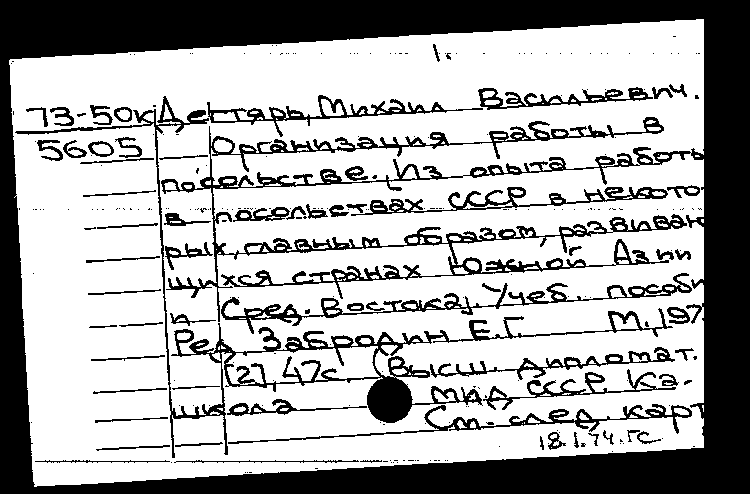 1.
73-50к Дегтярь, Михаил Васильевич.
5605 Организация работы в
посольстве. [Из опыта работы
в посольствах СССР в некото-
рых, главным образом, развиваю
щихся странах Южной Азии
и Сред. Востока]. Учеб. пособи
Ред. Забродин Е.Г. М., 197
[2], 47с. (Высш. дипломат.
школа МИД СССР. Ка-
См. след. карт
18.1.74.ГС